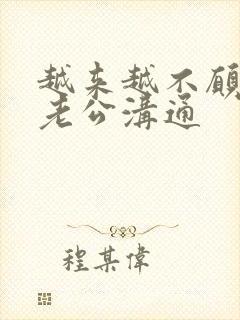 越来越不願
老公溝通
程某偉